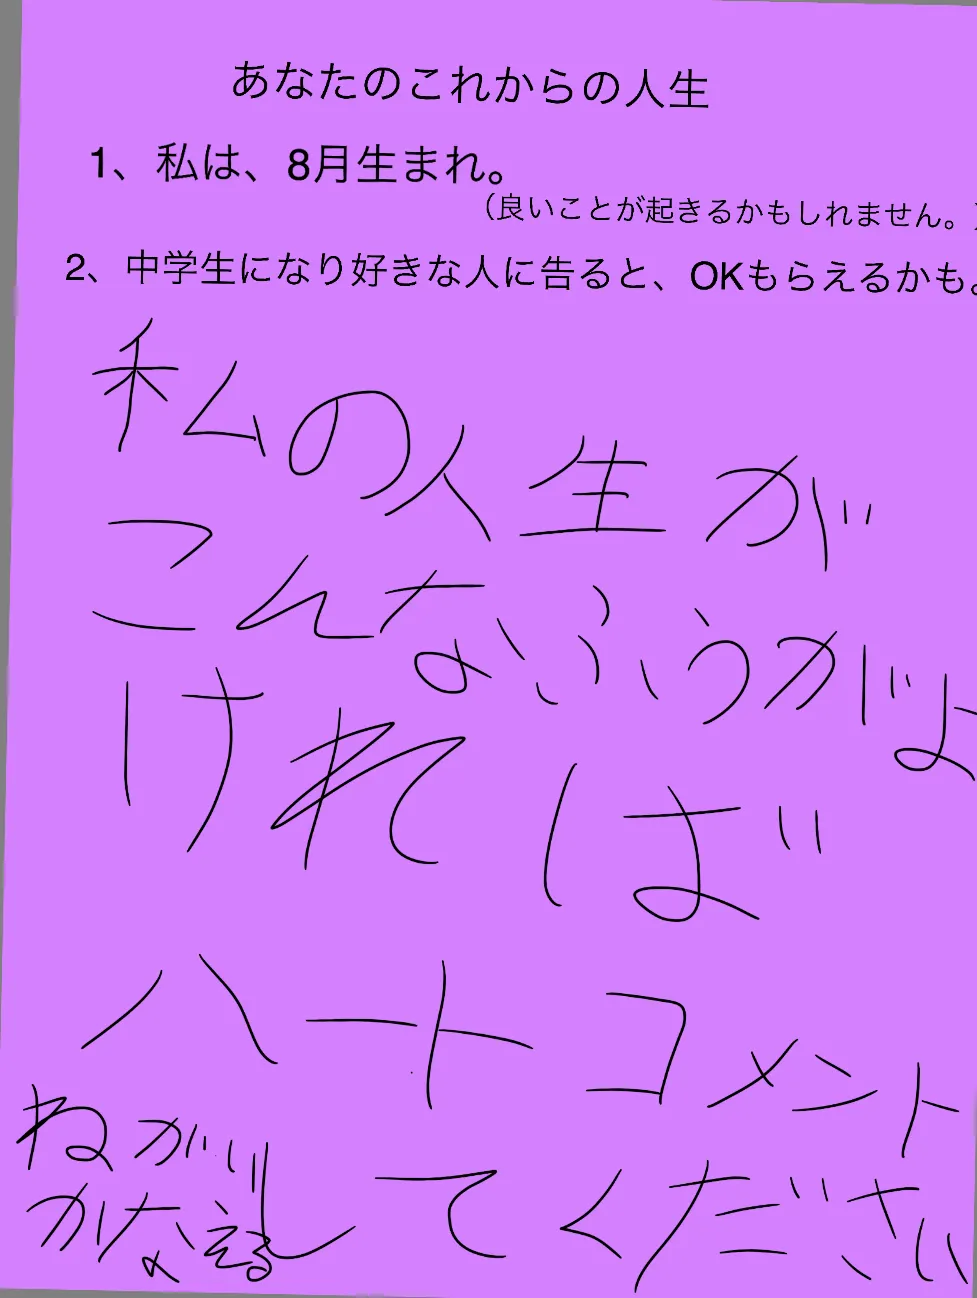 あなたのこれからの人生
1、私は、8月生まれ。
（良いことが起きるかもしれません。）
2、中学生になり好きな人に告ると、OKもらえるかも。
私の人生が
こんなふうがよ
ければ
ハートコメント
してください
ねがい
かなえる